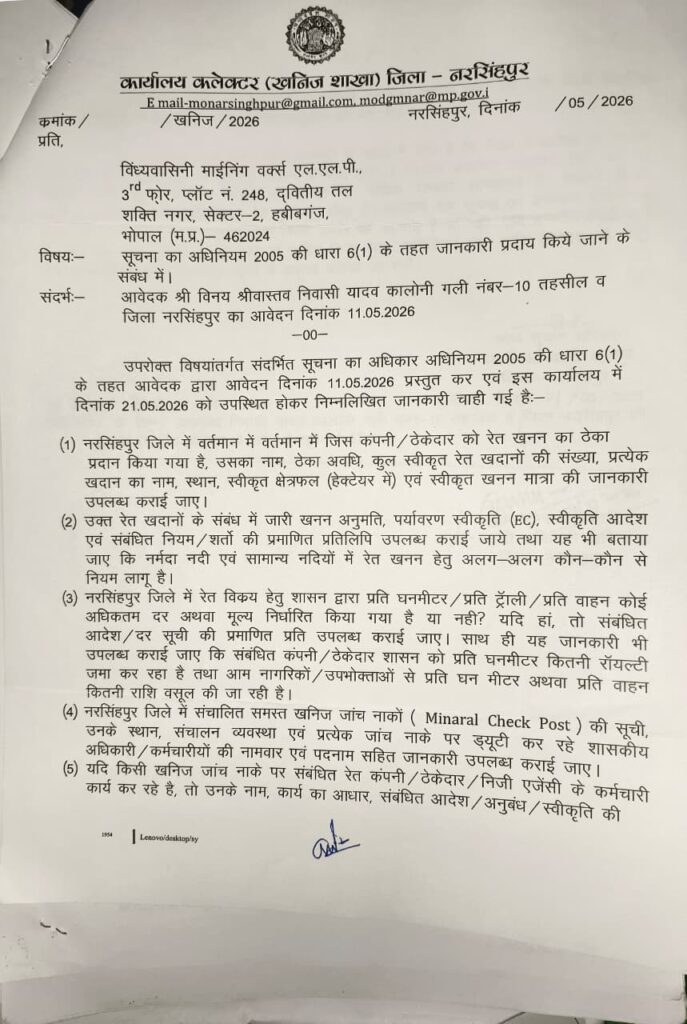 कार्यालय कलेक्टर (खनिज शाखा) जिला – नरसिंहपुर
E mail-monarsinghpur@gmail.com, modgmnar@mp.gov.i
कमांक / /खनिज/2026 नरसिंहपुर, दिनांक /05/2026
प्रति,
विंध्यवासिनी माईनिंग वर्क्स एल.एल.पी.,
3rd फो्र, प्लॉट नं. 248, द्वितीय तल
शक्ति नगर, सेक्टर–2, हबीबगंज,
भोपाल (म.प्र.)– 462024
विषयः– सूचना का अधिनियम 2005 की धारा 6(1) के तहत जानकारी प्रदाय किये जाने के
संबंध में।
संदर्भः– आवेदक श्री विनय श्रीवास्तव निवासी यादव कालोनी गली नंबर–10 तहसील व
जिला नरसिंहपुर का आवेदन दिनांक 11.05.2026
–00–
उपरोक्त विषयांतर्गत संदर्भित सूचना का अधिकार अधिनियम 2005 की धारा 6(1)
के तहत आवेदक द्वारा आवेदन दिनांक 11.05.2026 प्रस्तुत कर एवं इस कार्यालय में
दिनांक 21.05.2026 को उपस्थित होकर निम्नलिखित जानकारी चाही गई हैः–
(1) नरसिंहपुर जिले में वर्तमान में वर्तमान में जिस कंपनी/ठेकेदार को रेत खनन का ठेका
प्रदान किया गया है, उसका नाम, ठेका अवधि, कुल स्वीकृत रेत खदानों की संख्या, प्रत्येक
खदान का नाम, स्थान, स्वीकृत क्षेत्रफल (हेक्टेयर में) एवं स्वीकृत खनन मात्रा की जानकारी
उपलब्ध कराई जाए।
(2) उक्त रेत खदानों के संबंध में जारी खनन अनुमति, पर्यावरण स्वीकृति (EC), स्वीकृति आदेश
एवं संबंधित नियम/शर्तो की प्रमाणित प्रतिलिपि उपलब्ध कराई जाये तथा यह भी बताया
जाए कि नर्मदा नदी एवं सामान्य नदियों में रेत खनन हेतु अलग–अलग कौन–कौन से
नियम लागू है।
(3) नरसिंहपुर जिले में रेत विक्रय हेतु शासन द्वारा प्रति घनमीटर/प्रति ट्रॅाली/प्रति वाहन कोई
अधिकतम दर अथवा मूल्य निर्धारित किया गया है या नही? यदि हां, तो संबंधित
आदेश/दर सूची की प्रमाणित प्रति उपलब्ध कराई जाए। साथ ही यह जानकारी भी
उपलब्ध कराई जाए कि संबंधित कंपनी/ठेकेदार शासन को प्रति घनमीटर कितनी रॉयल्टी
जमा कर रहा है तथा आम नागरिकों/उपभोक्ताओं से प्रति घन मीटर अथवा प्रति वाहन
कितनी राशि वसूल की जा रही है।
(4) नरसिंहपुर जिले में संचालित समस्त खनिज जांच नाकों ( Minaral Check Post ) की सूची,
उनके स्थान, संचालन व्यवस्था एवं प्रत्येक जांच नाके पर ड्यूटी कर रहे शासकीय
अधिकारी/कर्मचारीयों की नामवार एवं पदनाम सहित जानकारी उपलब्ध कराई जाए।
(5) यदि किसी खनिज जांच नाके पर संबंधित रेत कंपनी/ठेकेदार/निजी एजेंसी के कर्मचारी
कार्य कर रहे है, तो उनके नाम, कार्य का आधार, संबंधित आदेश/अनुबंध/स्वीकृति की
1954 Lenovo/desktop/sy